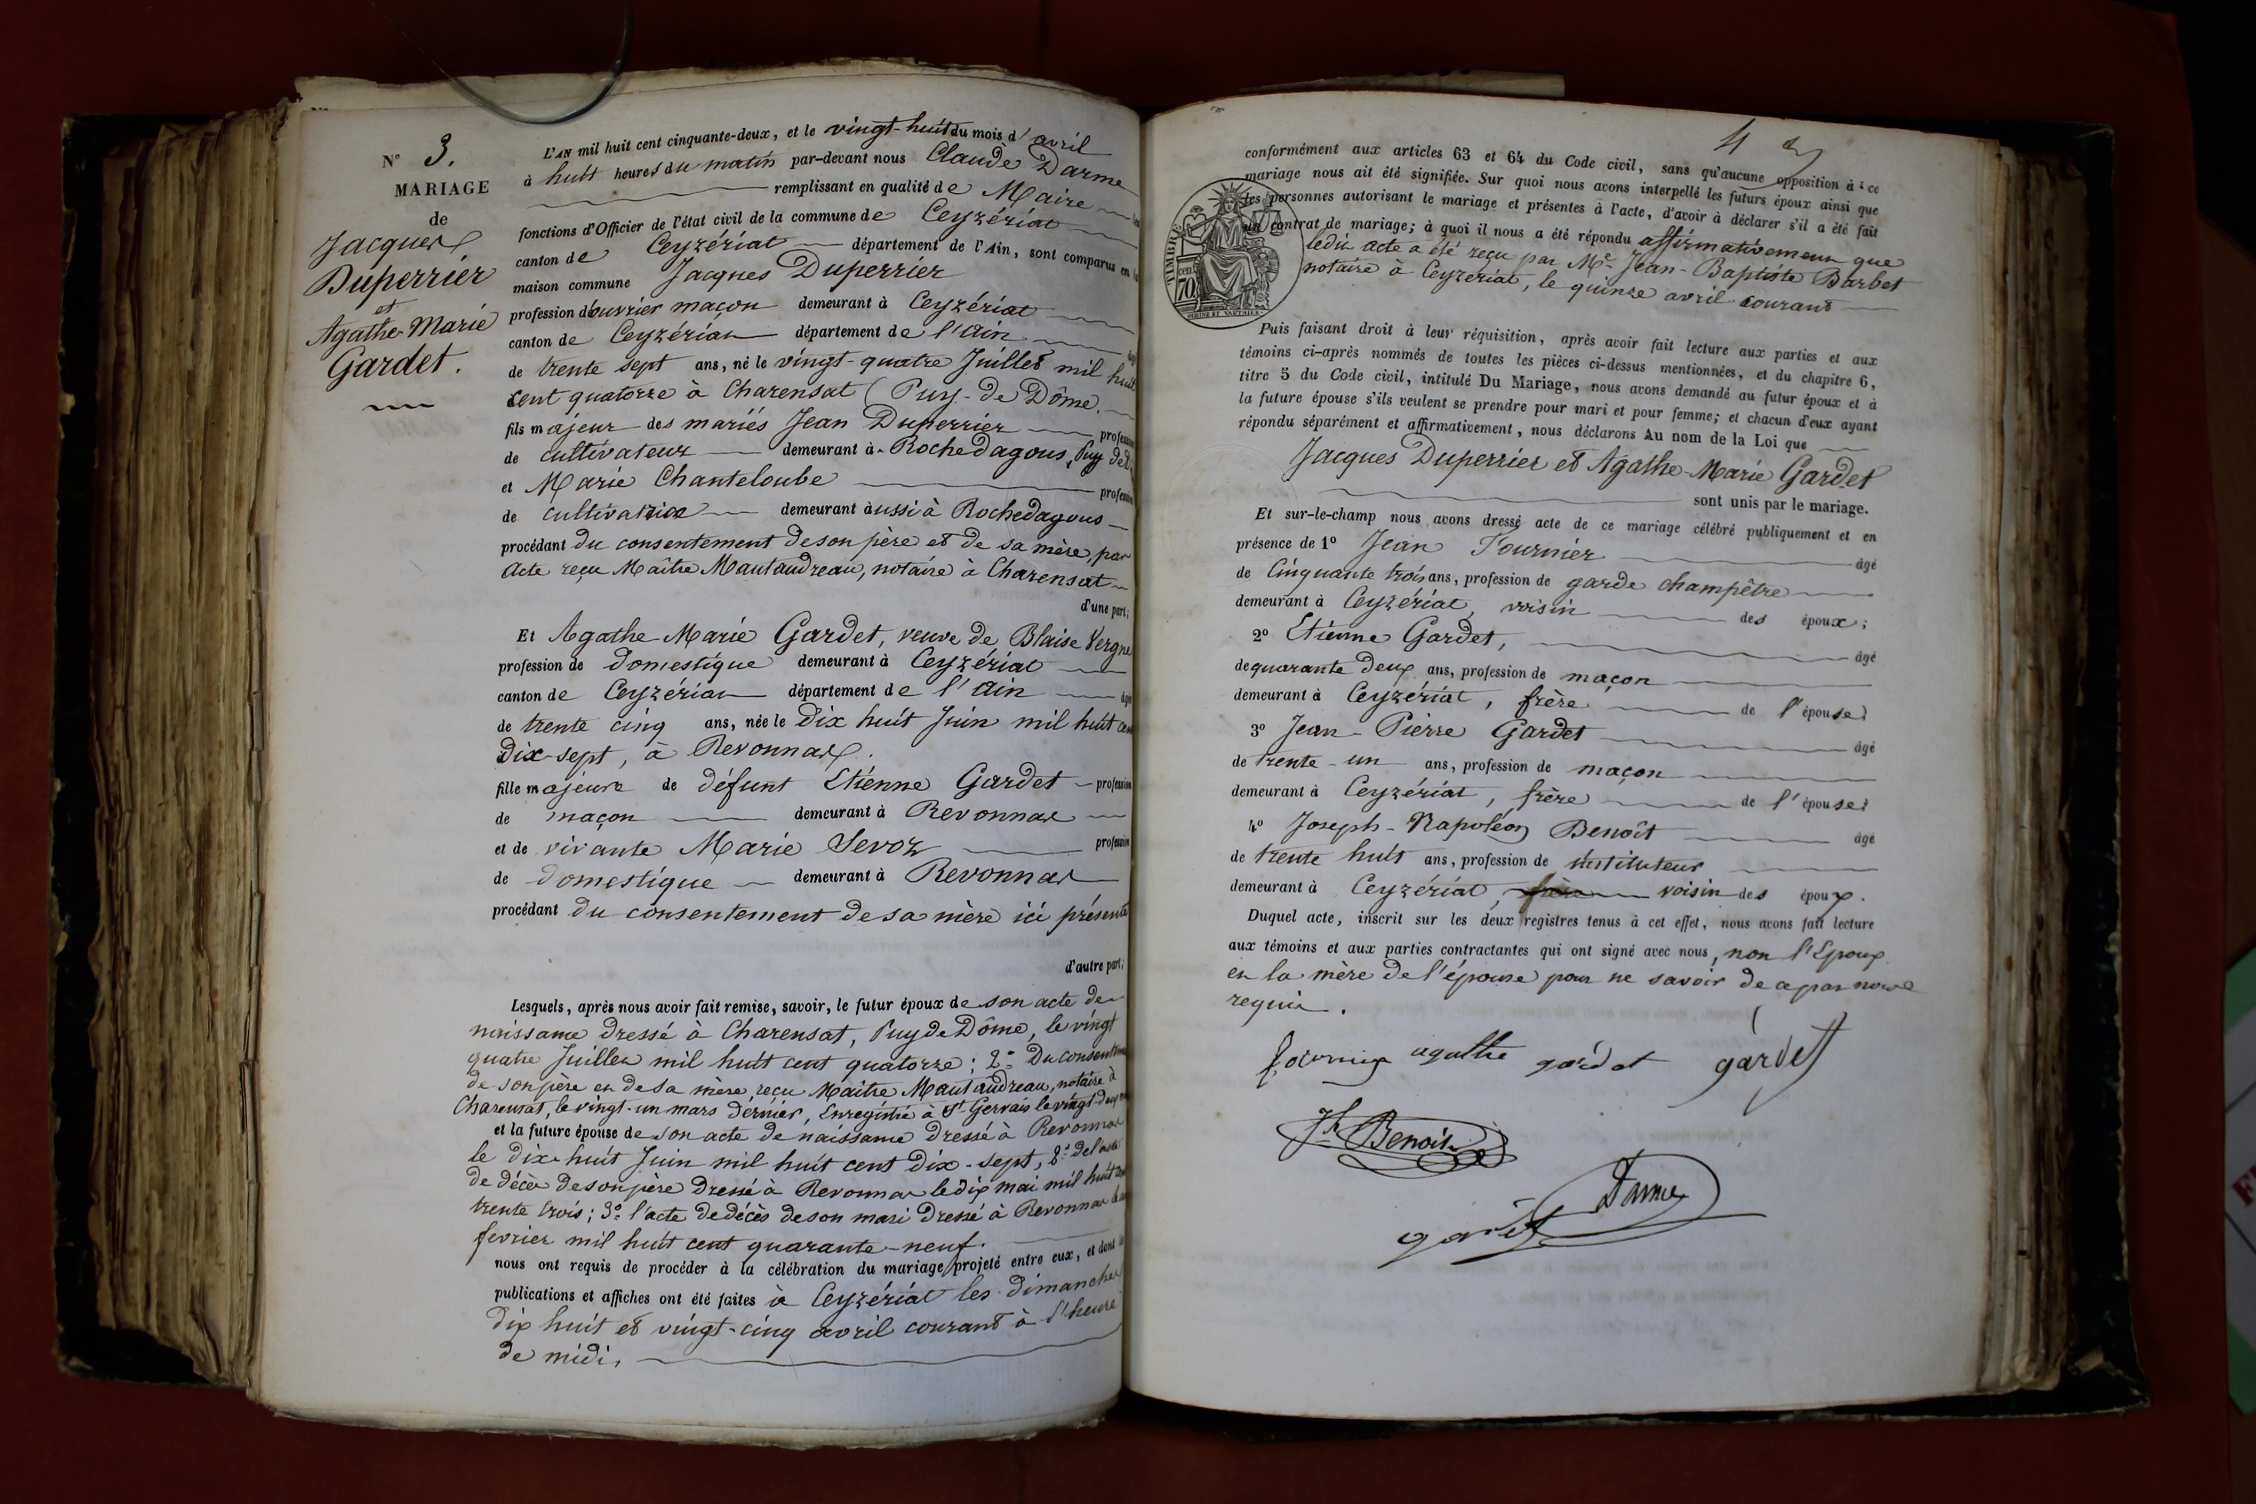 N° 3.
MARIAGE
de
Jacques
Duperrier
et
Agathe-Marie
Gardet.
L'AN mil huit cent cinquante-deux, et le vingt-huit du mois d'avril
à huit heures du matin par-devant nous Claude Darme
remplissant en qualité de Maire
fonctions d'Officier de l'état civil de la commune de Ceyzériat
canton de Ceyzériat département de l'Ain, sont comparus en
maison commune Jacques Duperrier
profession d'ouvrier maçon demeurant à Ceyzériat
canton de Ceyzériat département de l'Ain
de trente sept ans, né le vingt-quatre Juillet mil huit
cent quatorze à Charensat (Puy-de Dôme.
fils majeur des mariés Jean Duperrier profession
de cultivateur demeurant à Rochedagous, Puy de D.
et Marie Chanteloube profession
de cultivatrice demeurant aussi à Rochedagous
procédant du consentement de son père et de sa mère, par
acte reçu Maître Mautaudreau, notaire à Charensat
d'une part;
Et Agathe-Marie Gardet, veuve de Blaise Vergne
profession de domestique demeurant à Ceyzériat
canton de Ceyzériat département de l'Ain
de trente cinq ans, née le dix huit Juin mil huit cent
dix-sept, à Revonnas.
fille majeure de défunt Etienne Gardet profession
de maçon demeurant à Revonnas
et de vivante Marie Sevoz profession
de domestique demeurant à Revonnas
procédant du consentement de sa mère ici présente
d'autre part;
Lesquels, après nous avoir fait remise, savoir, le futur époux de son acte de
naissance dressé à Charensat, Puy de Dôme, le vingt
quatre Juillet mil huit cent quatorze; 2° Du consentement
de son père et de sa mère, reçu Maître Mautaudreau, notaire à
Charensat, le vingt-un mars dernier, Enregistré à St Gervais le vingt-deux
et la future épouse de son acte de naissance dressé à Revonnas
le dix-huit Juin mil huit cent dix-sept, 2° de l'acte
de décès de son père dressé à Revonnas le dix mai mil huit cent
trente trois; 3° l'acte de décès de son mari dressé à Revonnas
février mil huit cent quarante-neuf.
nous ont requis de procéder à la célébration du mariage projeté entre eux, et dont
publications et affiches ont été faites à Ceyzériat les dimanches
dix huit et vingt-cinq avril courant à l'heure
de midi,
4
conformément aux articles 63 et 64 du Code civil, sans qu'aucune opposition à ce
mariage nous ait été signifiée. Sur quoi nous avons interpellé les futurs époux ainsi que
les personnes autorisant le mariage et présentes à l'acte, d'avoir à déclarer s'il a été fait
un contrat de mariage; à quoi il nous a été répondu affirmativement que
ledit acte a été reçu par Me Jean-Baptiste Barbet
notaire à Ceyzériat, le quinze avril courant
TIMBRE
70
Puis faisant droit à leur réquisition, après avoir fait lecture aux parties et aux
témoins ci-après nommés de toutes les pièces ci-dessus mentionnées, et du chapitre 6,
titre 5 du Code civil, intitulé Du Mariage, nous avons demandé au futur époux et à
la future épouse s'ils veulent se prendre pour mari et pour femme; et chacun d'eux ayant
répondu séparément et affirmativement, nous déclarons Au nom de la Loi que
Jacques Duperrier et Agathe-Marie Gardet
sont unis par le mariage.
Et sur-le-champ nous avons dressé acte de ce mariage célébré publiquement et en
présence de 1° Jean Fournier âgé
de Cinquante trois ans, profession de garde champêtre
demeurant à Ceyzériat, voisin des époux;
2° Etienne Gardet, âgé
de quarante deux ans, profession de maçon
demeurant à Ceyzériat, frère de l'épouse;
3° Jean-Pierre Gardet âgé
de trente-un ans, profession de maçon
demeurant à Ceyzériat, frère de l'épouse;
4° Joseph-Napoléon Benoît âgé
de trente huit ans, profession de instituteur
demeurant à Ceyzériat, frère voisin des époux.
Duquel acte, inscrit sur les deux registres tenus à cet effet, nous avons fait lecture
aux témoins et aux parties contractantes qui ont signé avec nous, non l'époux
et la mère de l'épouse pour ne savoir de ce par nous
requis.
fournier agathe gardet gardet
Jh Benoit
Darme
gardet